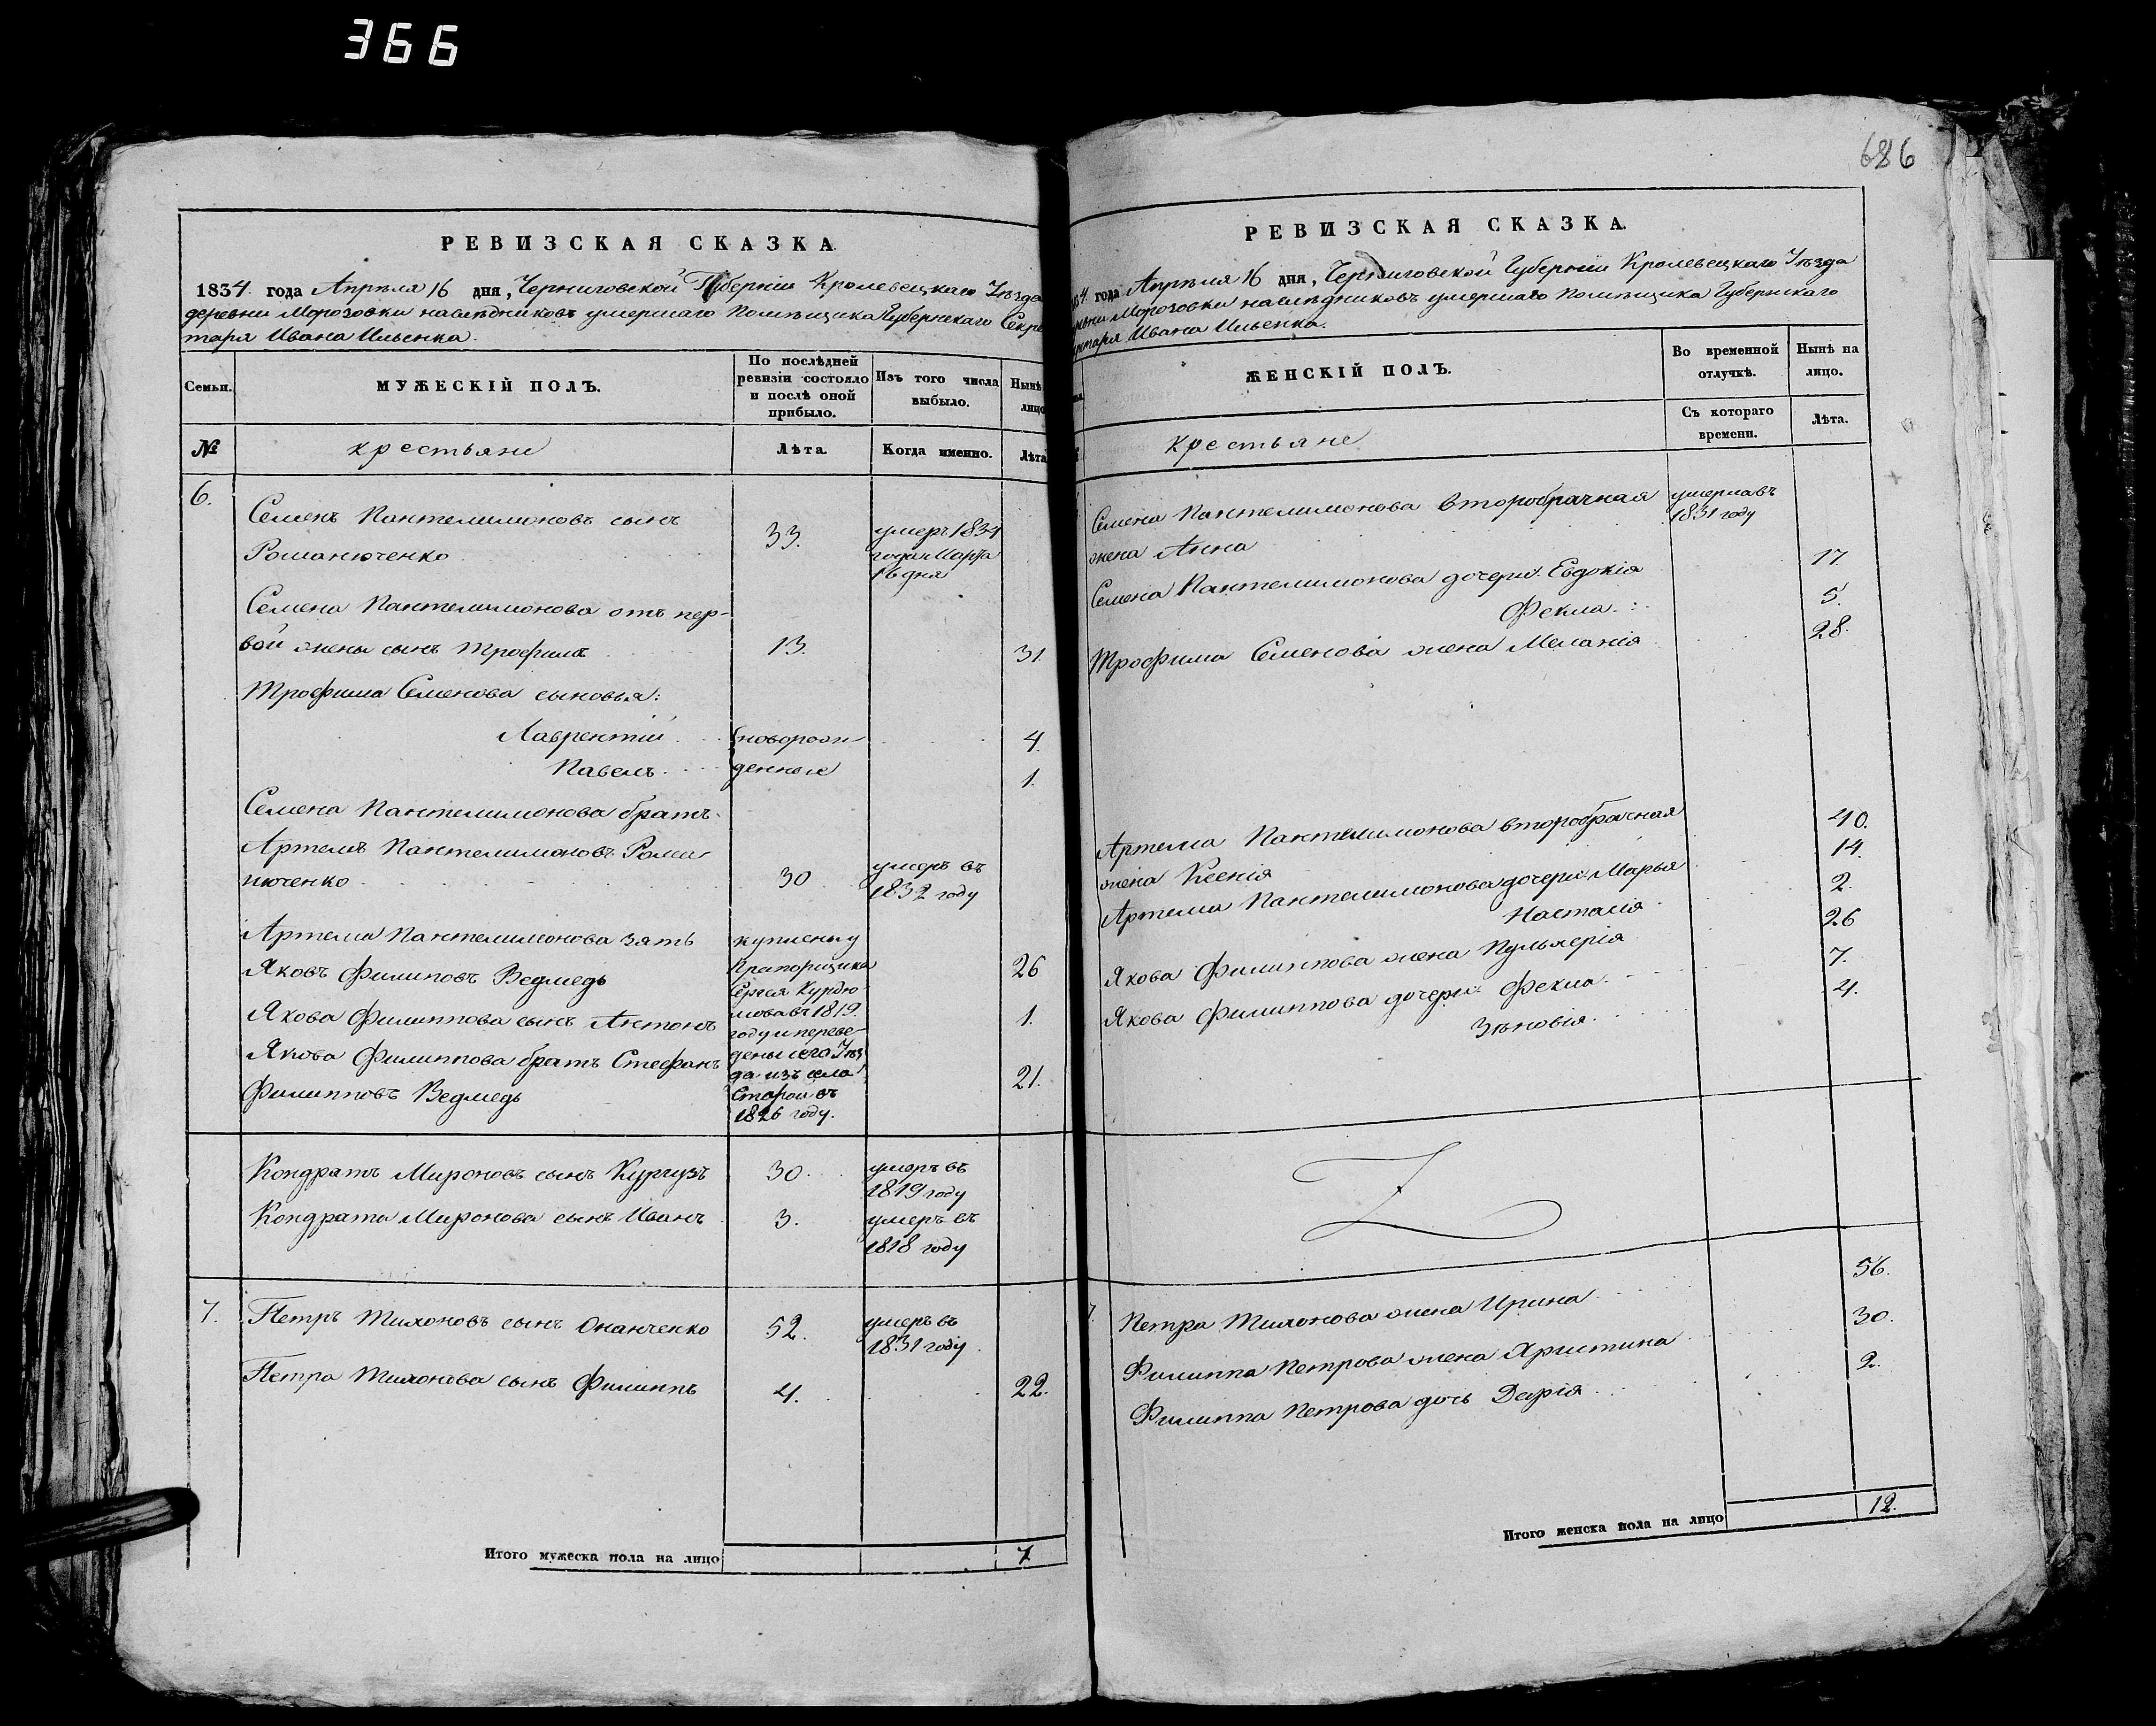 366
686
РЕВИЗСКАЯ СКАЗКА
1834. года Апрѣля 16 дня, Черниговской Губерніи Кролевецкаго Уѣзда
деревни Морозовки наслѣдниковъ умершаго Помѣщика Губернскаго Секре
таря Ивана Ильенка.
Семьи.
МУЖЕСКІЙ ПОЛЪ.
По послѣдней
ревизіи состояло
и послѣ оной
прибыло.
Изъ того числа
выбыло.
Нынѣ
лицо
№
крестьяне
Лѣта.
Когда именно.
Лѣта
6.
Семенъ Пантелимоновъ сынъ
Романюченко
33.
умеръ 1834
года Марта
16 дня
Семена Пантелимонова отъ пер-
вой жены сынъ Трофимъ
13.
31.
Трофима Семенова сыновья:
Лаврентій
новорож
4.
Павелъ
денные
1.
Семена Пантелимонова братъ
Артемъ Пантелимоновъ Рома
нюченко
30
умеръ въ
1832 году
Артема Пантелимонова зять
Яковъ Филиповъ Ведмедь
26
Якова Филиппова сынъ Антонъ
1.
Якова Филиппова братъ Стефанъ
Филипповъ Ведмедь
21.
куплены у
Прапорщика
Сергея Курдю
мова въ 1819.
году и переве-
дены сего Уѣз
да изъ села
Старой въ
1826 году.
Кондратъ Мироновъ сынъ Кургузъ
30.
умеръ въ
1819 году
Кондрата Миронова сынъ Иванъ
3.
умеръ въ
1818 году
7.
Петръ Тихоновъ сынъ Онанченко
52.
умеръ въ
1831 году
Петра Тихонова сынъ Филиппъ
4.
22.
Итого мужеска пола на лицо
7
РЕВИЗСКАЯ СКАЗКА.
34. года Апрѣля 16 дня, Черниговской Губерніи Кролевецкаго Уѣзда
ревни Морозовки наслѣдниковъ умершаго Помѣщика Губернскаго
кретаря Ивана Ильенка.
ЖЕНСКІЙ ПОЛЪ.
Во временной
отлучкѣ.
Нынѣ на
лицо.
крестьяне
Съ котораго
времени.
Лѣта.
Семена Пантелимонова второбрачная
жена Анна
умерла въ
1831 году
Семена Пантелимонова дочери: Евдокія
17.
Фекла
5.
Трофима Семенова жена Меланія
28.
Артема Пантелимонова второбрачная
жена Ксенія
40.
Артема Пантелимонова дочери: Марья
14.
Настасія
2.
Якова Филиппова жена Пульхерія
26
Якова Филиппова дочери: Фекла
7.
Зѣновія
4.
7.
Петра Тихонова жена Ирина
56.
Филиппа Петрова жена Христина
30.
Филиппа Петрова дочь Дарія
2.
Итого женска пола на лицо
12.